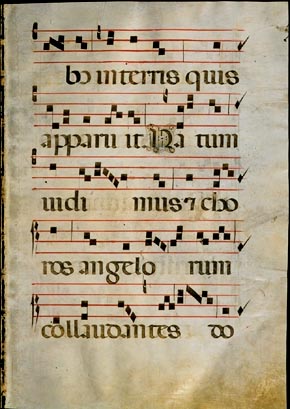 bo in terris quis
apparu it Na tum
vidi mus ⁊ cho
ros angelo rum
collaudantes do